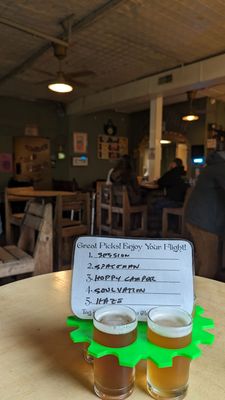 Great Picks! Enjoy Your Flight!
1. SESSION
2. SPACEMAN
3. HOPPY CAMPER
4. SOULVATION
5. HAZE